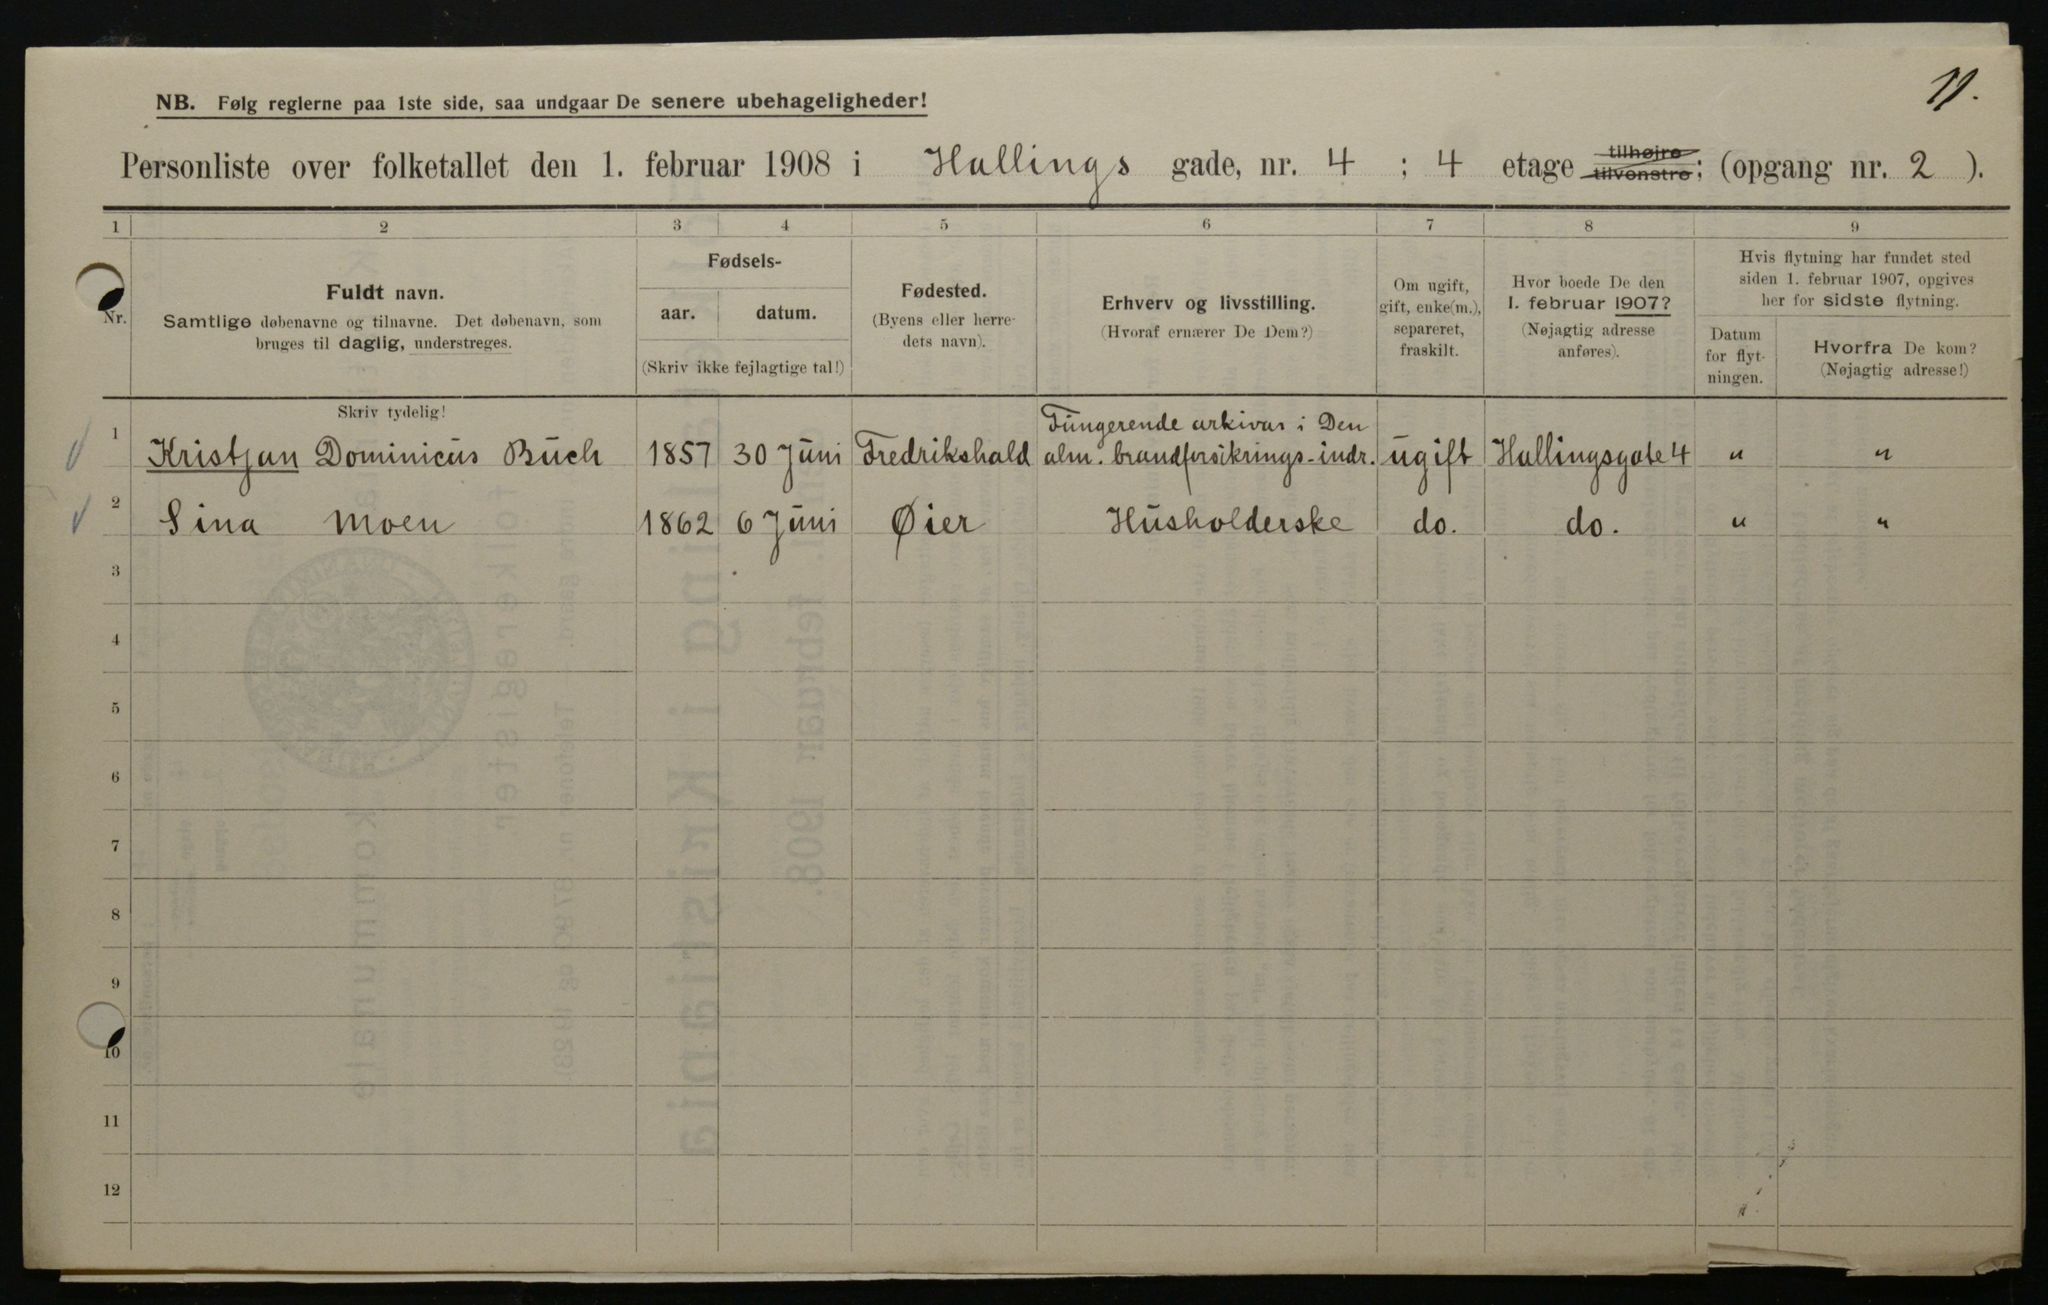 11.
NB. Følg reglerne paa 1ste side, saa undgaar De senere ubehageligheder!
Personliste over folketallet den 1. februar 1908 i Hallings gade, nr. 4 ; 4 etage tilhøjre tilvenstre; (opgang nr. 2 ).
1 2 3 4 5 6 7 8 9
Nr.
Fuldt navn.
Samtlige døbenavne og tilnavne. Det døbenavn, som
bruges til daglig, understreges.
Fødsels-
aar. datum.
(Skriv ikke fejlagtige tal!)
Fødested.
(Byens eller herre-
dets navn).
Erhverv og livsstilling.
(Hvoraf ernærer De Dem?)
Om ugift,
gift, enke(m.),
separeret,
fraskilt.
Hvor boede De den
1. februar 1907?
(Nøjagtig adresse
anføres).
Hvis flytning har fundet sted
siden 1. februar 1907, opgives
her for sidste flytning.
Datum
for flyt-
ningen.
Hvorfra De kom?
(Nøjagtig adresse!)
Skriv tydelig!
Fungerende arkivar i Den
1 Kristjan Dominicus Buch 1857 30 Juni Fredrikshald alm. brandforsikrings-indr. ugift Hallingsgate 4 " "
2 Sina Moen 1862 6 Juni Øier Husholderske do. do. " "
3
4
5
6
7
8
9
10
11
12